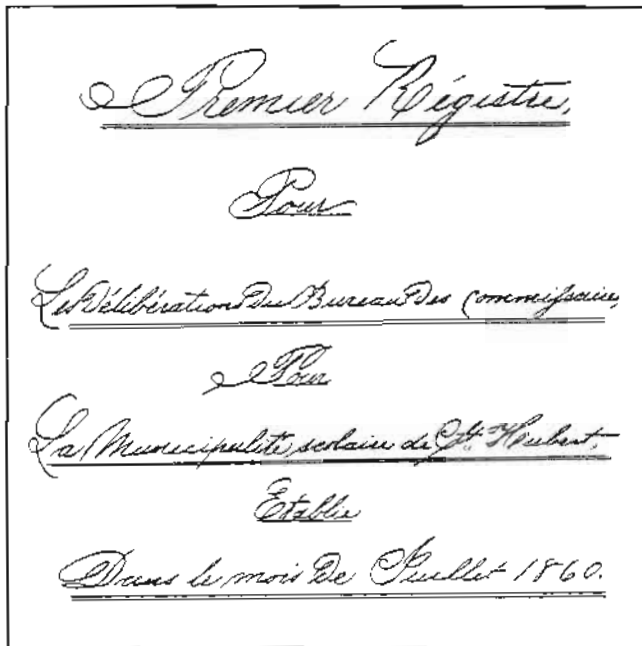 Premier Régistre,
Pour
Les Délibération Du Bureau Des Commissaires
Pour
La Municipalité scolaire de St. Hubert,
Etablie
Dans le mois De Juillet 1860.